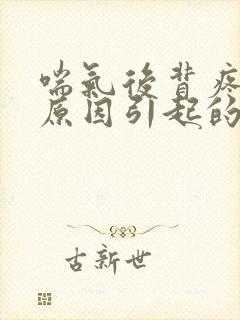 喘氣後背疼
原因引起的
古新世